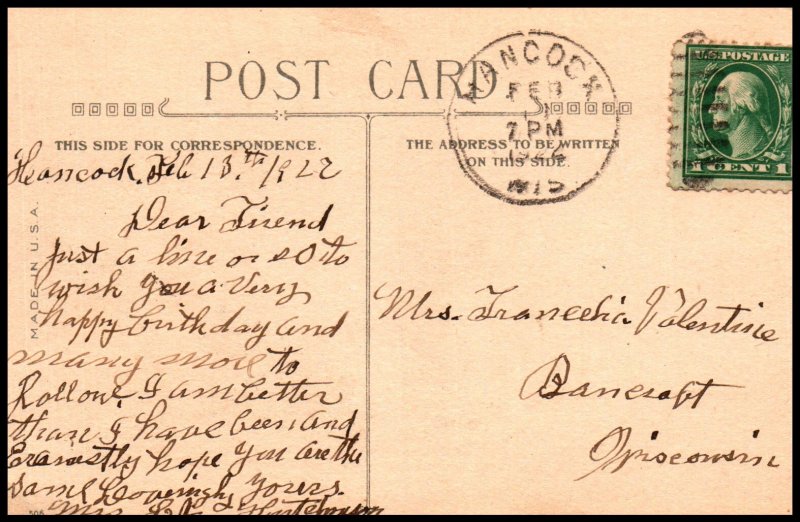 POST CARD
THIS SIDE FOR CORRESPONDENCE.
THE ADDRESS TO BE WRITTEN
ON THIS SIDE.
HANCOCK
FEB
7 PM
1922
WIS
U.S. POSTAGE
1 CENT 1
MADE IN U.S.A.
Hancock, Feb 13th 1922
Dear Friend
Just a line or so to
wish you a very
happy birthday and
many more to
follow. I am better
than I have been and
hope you are the
same yours.
Mrs.
506
Mrs. Valentine
Bancroft
Wisconsin